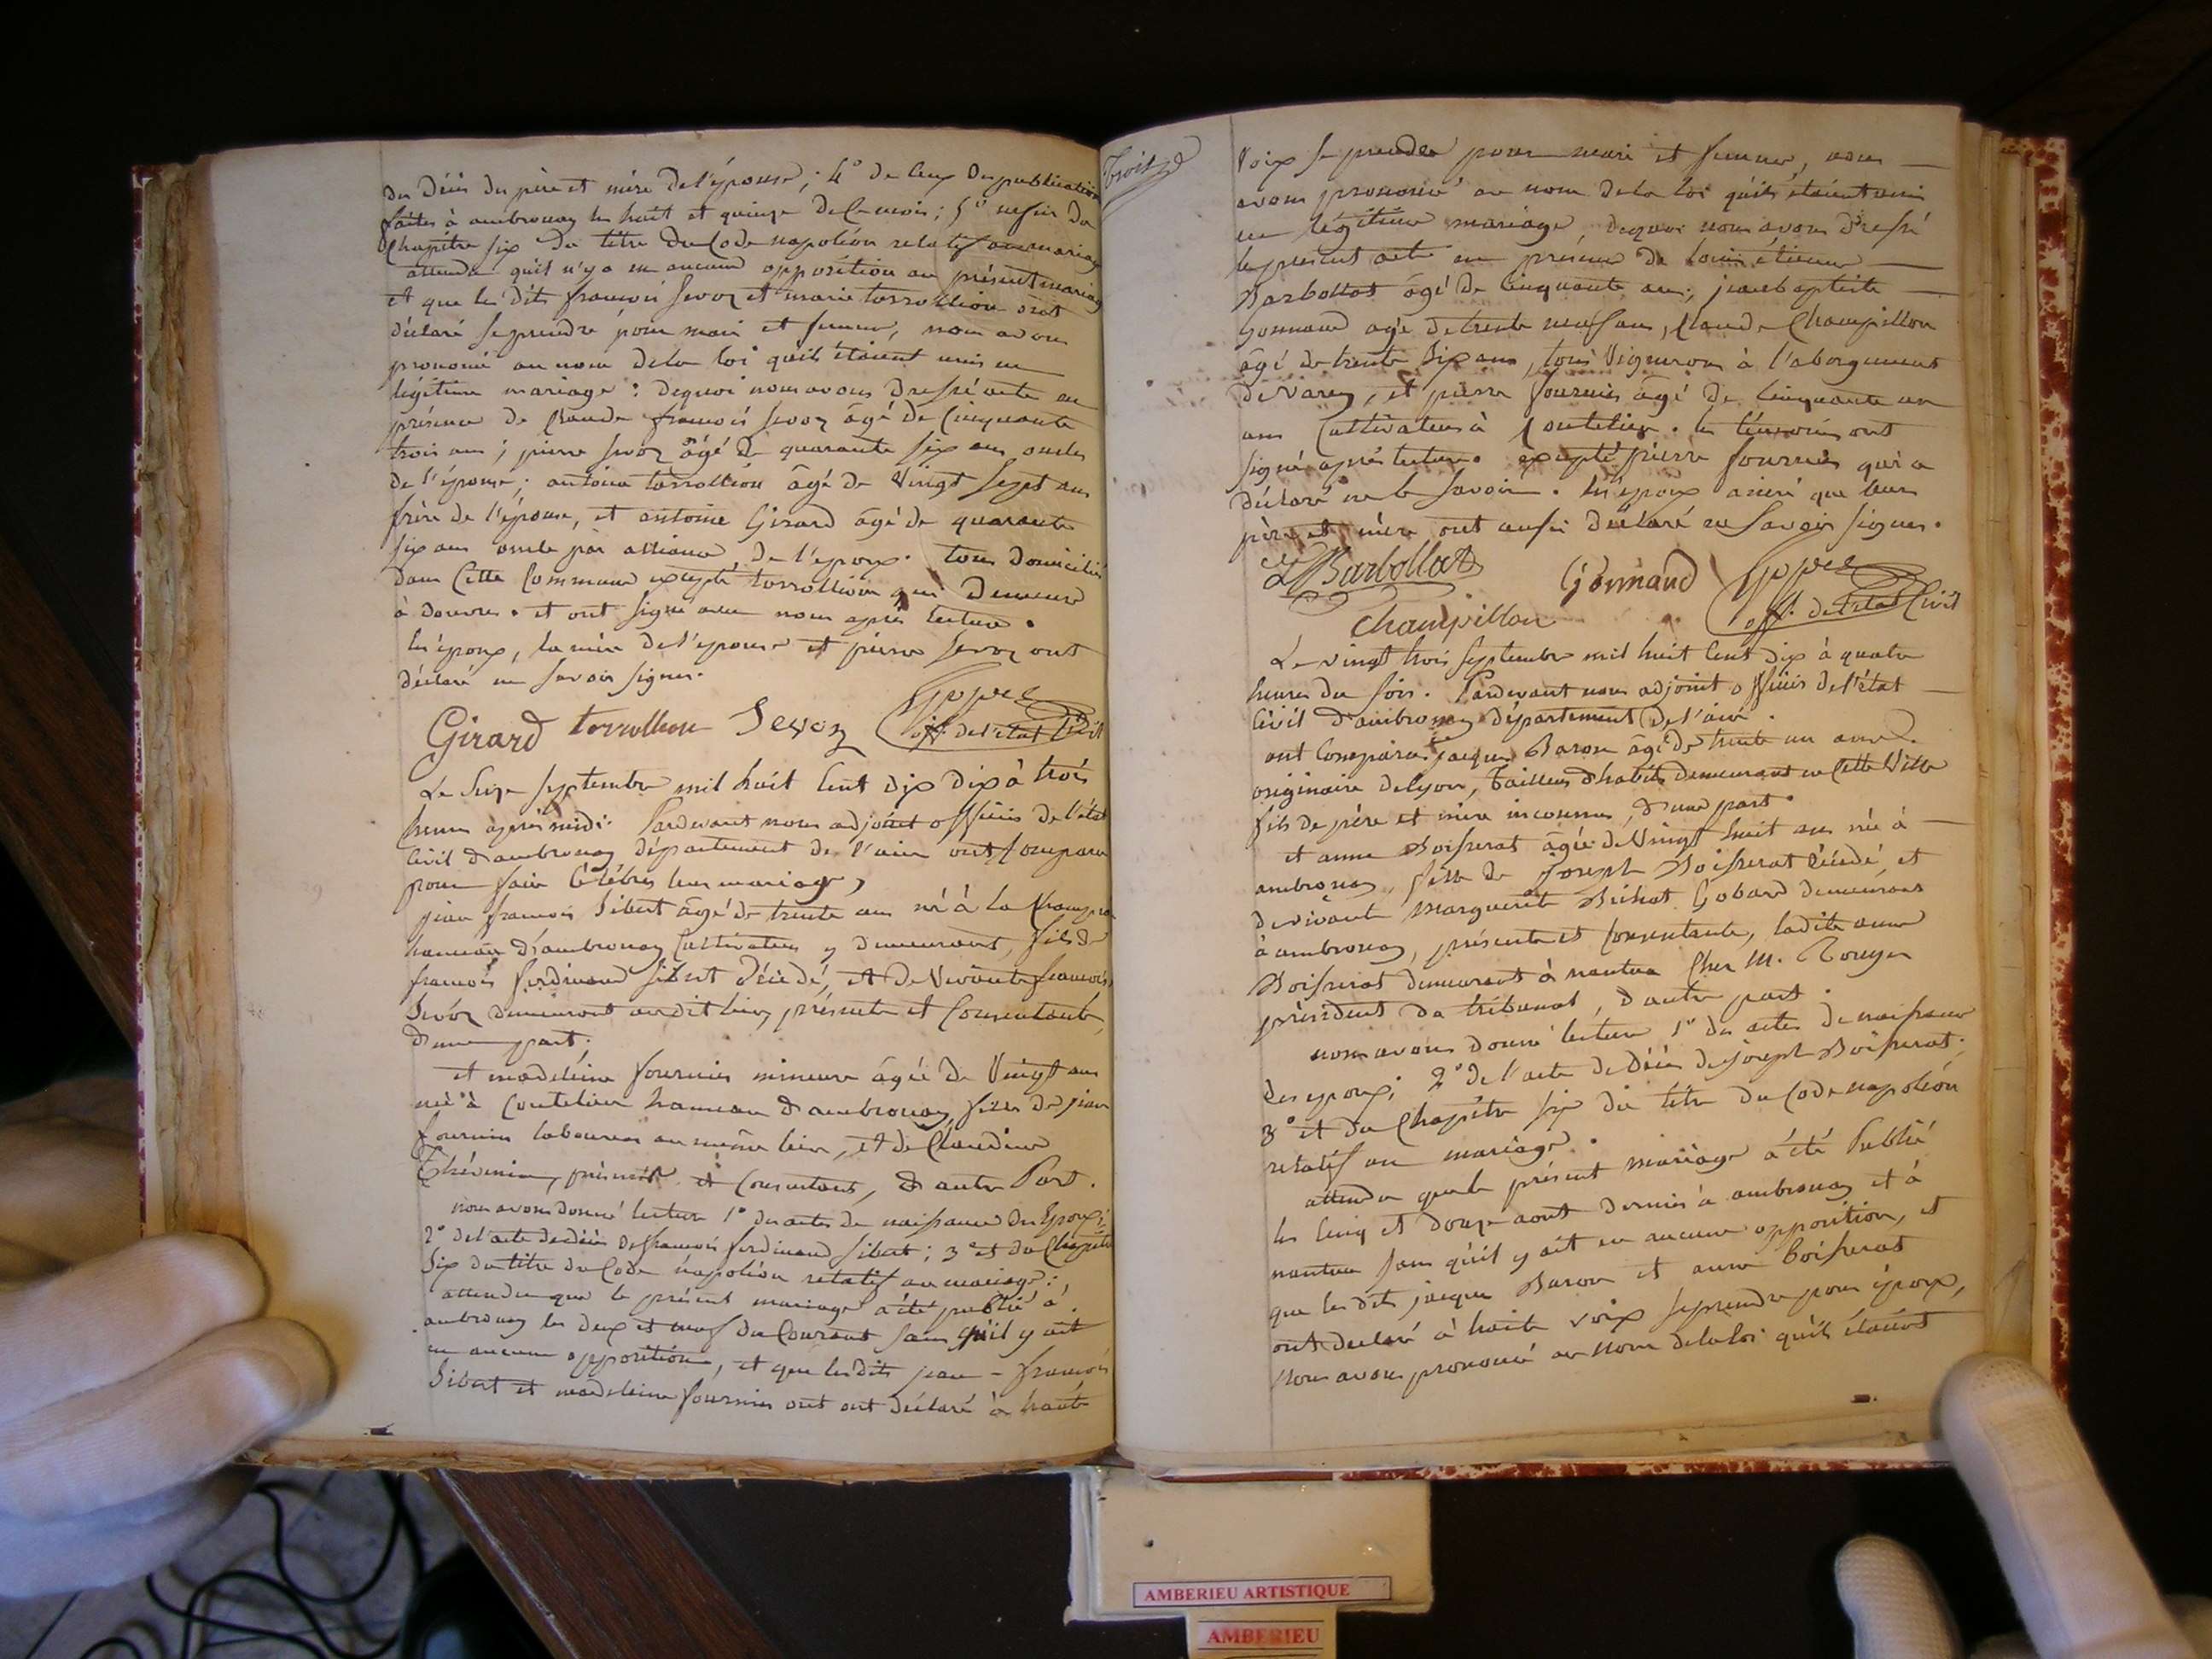 du décès du père et mère de l'épouse; 4° de leux des publications
faites à ambronay les huit et quinze de ce mois; 5° enfin du
Chapitre six du titre du Code napoléon relatif au mariage
attendu qu'il n'y a eu aucune opposition au présent mariage
et que les dits françois Sevoz et marie torrollion ont
déclaré se prendre pour mari et femme, nous avons
prononcé au nom de la loi qu'ils étaient unis en
légitime mariage : dequoi nous avons dressé acte en
présence de Claude françois Sevoz âgé de Cinquante
trois ans; pierre Sevoz âgé de quarante six ans oncles
de l'épouse; antoine torrollion âgé de Vingt Sept ans
frère de l'épouse, et antoine Girard âgé de quarante
six ans oncle par alliance de l'époux. tous domiciliés
dans Cette Commune excepté torrollion qui demeure
à douvres. et ont signé avec nous après lecture.
les époux, la mère de l'épouse et pierre Sevoz ont
déclaré ne savoir signer.
Girard torrollion Sevoz
off. de l'état Civil
Le Seize Septembre mil huit Cent dix dix à trois
heures après midi. Pardevant nous adjoint officier de l'état
Civil d'ambronay département de l'ain ont Comparu
pour faire Célébrer leur mariage,
jean françois Sibert âgé de trente ans né à la
hameau d'ambronay Cultivateur y demeurant, fils de
françois ferdinand Sibert décédé, et de Vivante françoise
Sevoz demeurant audit lieu, présente et Consentante,
d'une part.
et madeleine fournier mineure âgée de Vingt ans
née à Coutelieu hameau d'ambronay, fille de jean
fournier laboureur au même lieu, et de Claudine
Thévenin, présents et Consentants, d'autre Part.
nous avons donné lecture 1° des actes de naissance des Epoux;
2° de l'acte de décès de françois ferdinand Sibert; 3° et du Chapitre
Six du titre du Code napoléon relatif au mariage;
attendu que le présent mariage a été publié à
ambronay les deux et neuf du Courant sans qu'il y ait
eu aucune opposition, et que les dits jean-françois
Sibert et madeleine fournier ont ont déclaré à haute
Trois
Voix se prendre pour mari et femme, nous
avons prononcé au nom de la loi qu'ils étaient unis
en légitime mariage, dequoi nous avons dressé
le présent acte en présence de louis étienne
Barbollat âgé de Cinquante ans; jean baptiste
Gonnand âgé de trente neuf ans, Claude Champillon
âgé de trente Six ans, tous Vignerons à l'abergement
de Varey, et pierre fournier âgé de Cinquante un
ans Cultivateur à Coutelieu. les témoins ont
signé après lecture. excepté pierre fournier qui a
déclaré ne le Savoir. les époux ainsi que leurs
père et mère ont aussi déclaré ne Savoir signer.
Barbollat Gonnand
Champillon off. de l'état Civil
Le vingt trois Septembre mil huit Cent dix à quatre
heures du Soir. Pardevant nous adjoint officier de l'état
Civil d'ambronay département de l'ain.
ont Comparu jacques Baron âgé de trente un ans
originaire de lyon, Tailleur d'habits demeurant en Cette Ville
fils de père et mère inconnus, d'une part.
et anne Boisserat âgée de Vingt huit ans née à
ambronay, fille de Joseph Boisserat décédé, et
de vivante Marguerite Gobard demeurant
à ambronay, présente et Consentante, ladite anne
Boisserat demeurant à nantua Chez M. Rouyer
président du tribunal, d'autre part.
nous avons donné lecture 1° des actes de naissance
des époux; 2° de l'acte de décès de joseph Boisserat;
3° et du Chapitre six du titre du Code napoléon
relatif au mariage.
attendu que le présent mariage a été Publié
les Cinq et douze aout dernier à ambronay et à
nantua sans qu'il y ait eu aucune opposition, et
que les dits jacques Baron et anne boisserat
ont declaré à haute voix se prendre pour époux,
Nous avons prononcé au Nom de la loi qu'ils étaient
AMBERIEU ARTISTIQUE
AMBERIEU